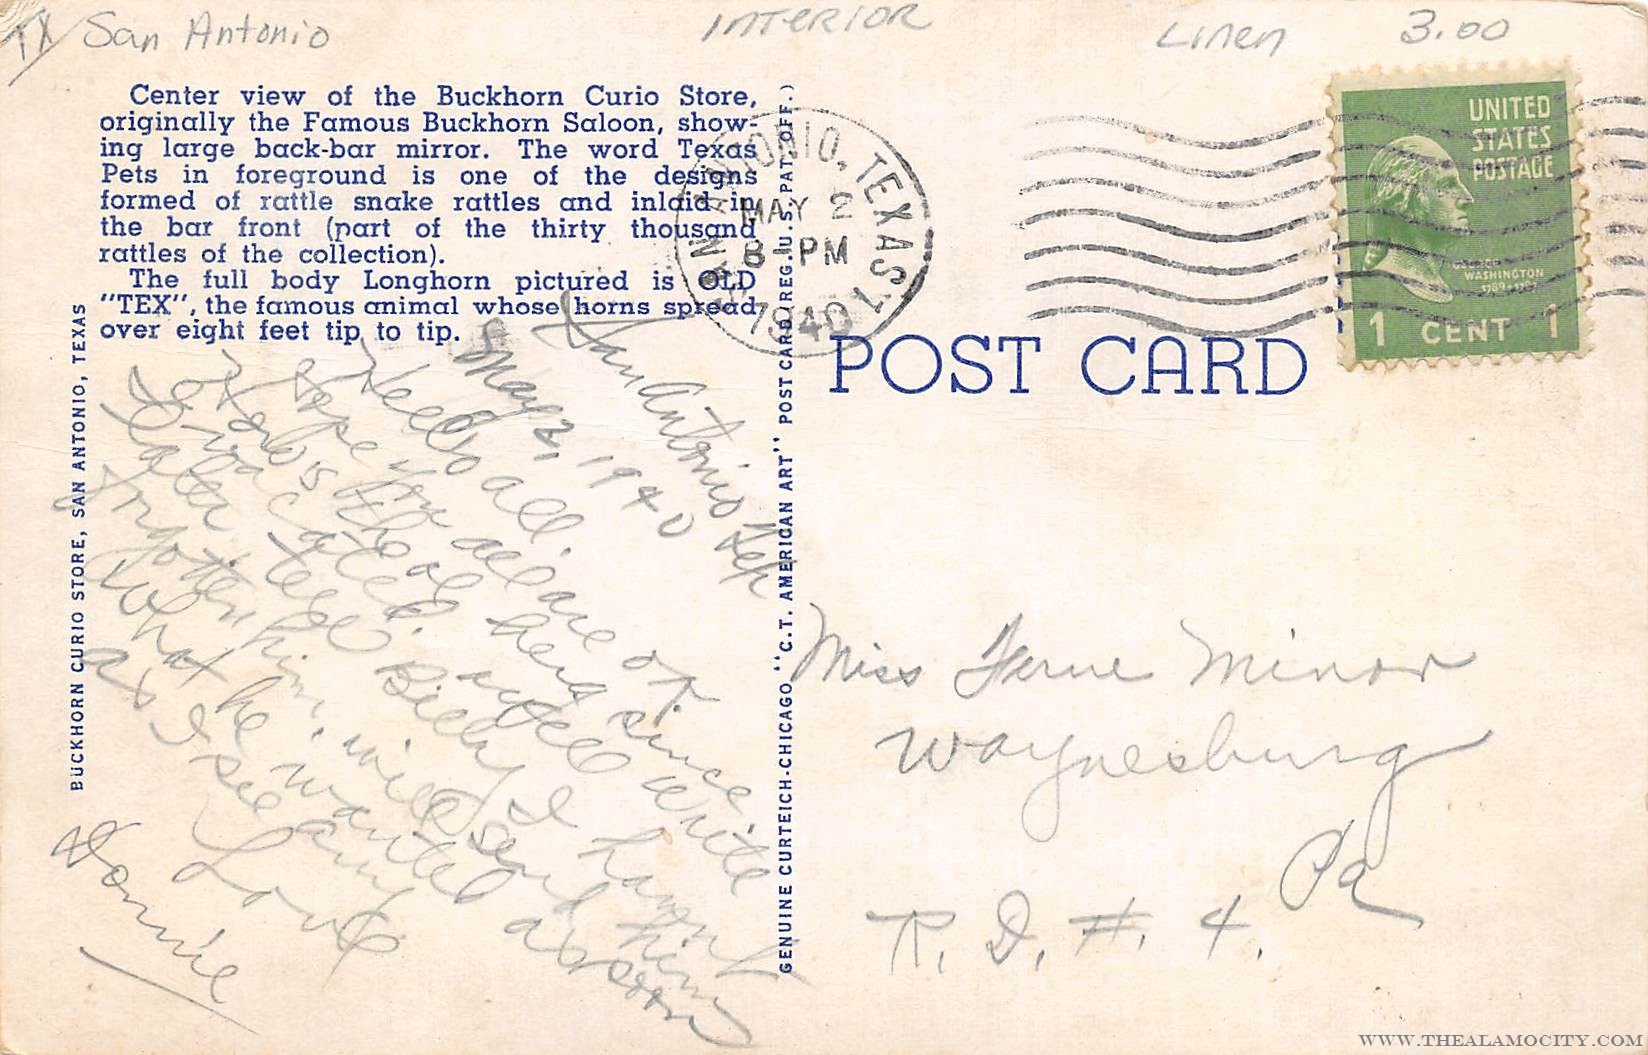 TX San Antonio
INTERIOR
Linen
3.00
Center view of the Buckhorn Curio Store,
originally the Famous Buckhorn Saloon, show-
ing large back-bar mirror. The word Texas
Pets in foreground is one of the designs
formed of rattle snake rattles and inlaid in
the bar front (part of the thirty thousand
rattles of the collection).
The full body Longhorn pictured is OLD
"TEX", the famous animal whose horns spread
over eight feet tip to tip.
BUCKHORN CURIO STORE, SAN ANTONIO, TEXAS
San Antonio
May 2, 1940
Hello all.
Hope you all are OK.
How's the old being since
vacated. will write
Later tell Billy I havent
forgotten him, will send him
what he wanted as soon
as I see any
Love
GENUINE CURTEICH-CHICAGO "C.T. AMERICAN ART" POST CARD (REG. U.S. PAT. OFF.)
SAN ANTONIO, TEXAS
MAY 2
8-PM
1940
UNITED
STATES
POSTAGE
GEORGE
WASHINGTON
1 CENT 1
POST CARD
Miss Ferne Minor
Waynesburg
Pa
R.D.#.4.
WWW.THEALAMOCITY.COM